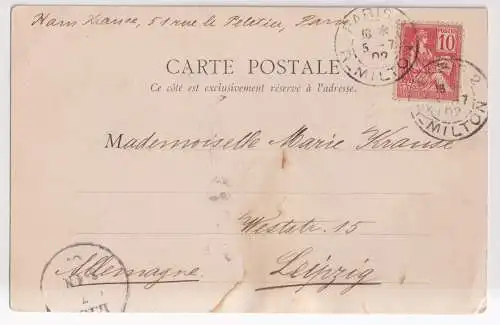 Hans Krause, 51 rue le Peletier, Paris
PARIS
16
5 -7
02
R. MILTON
POSTES
10
CARTE POSTALE
Ce côté est exclusivement réservé à l'adresse.
2
16
-7
02
R. MILTON
Mademoiselle Marie Krause
Weststr. 15
Allemagne. Leipzig